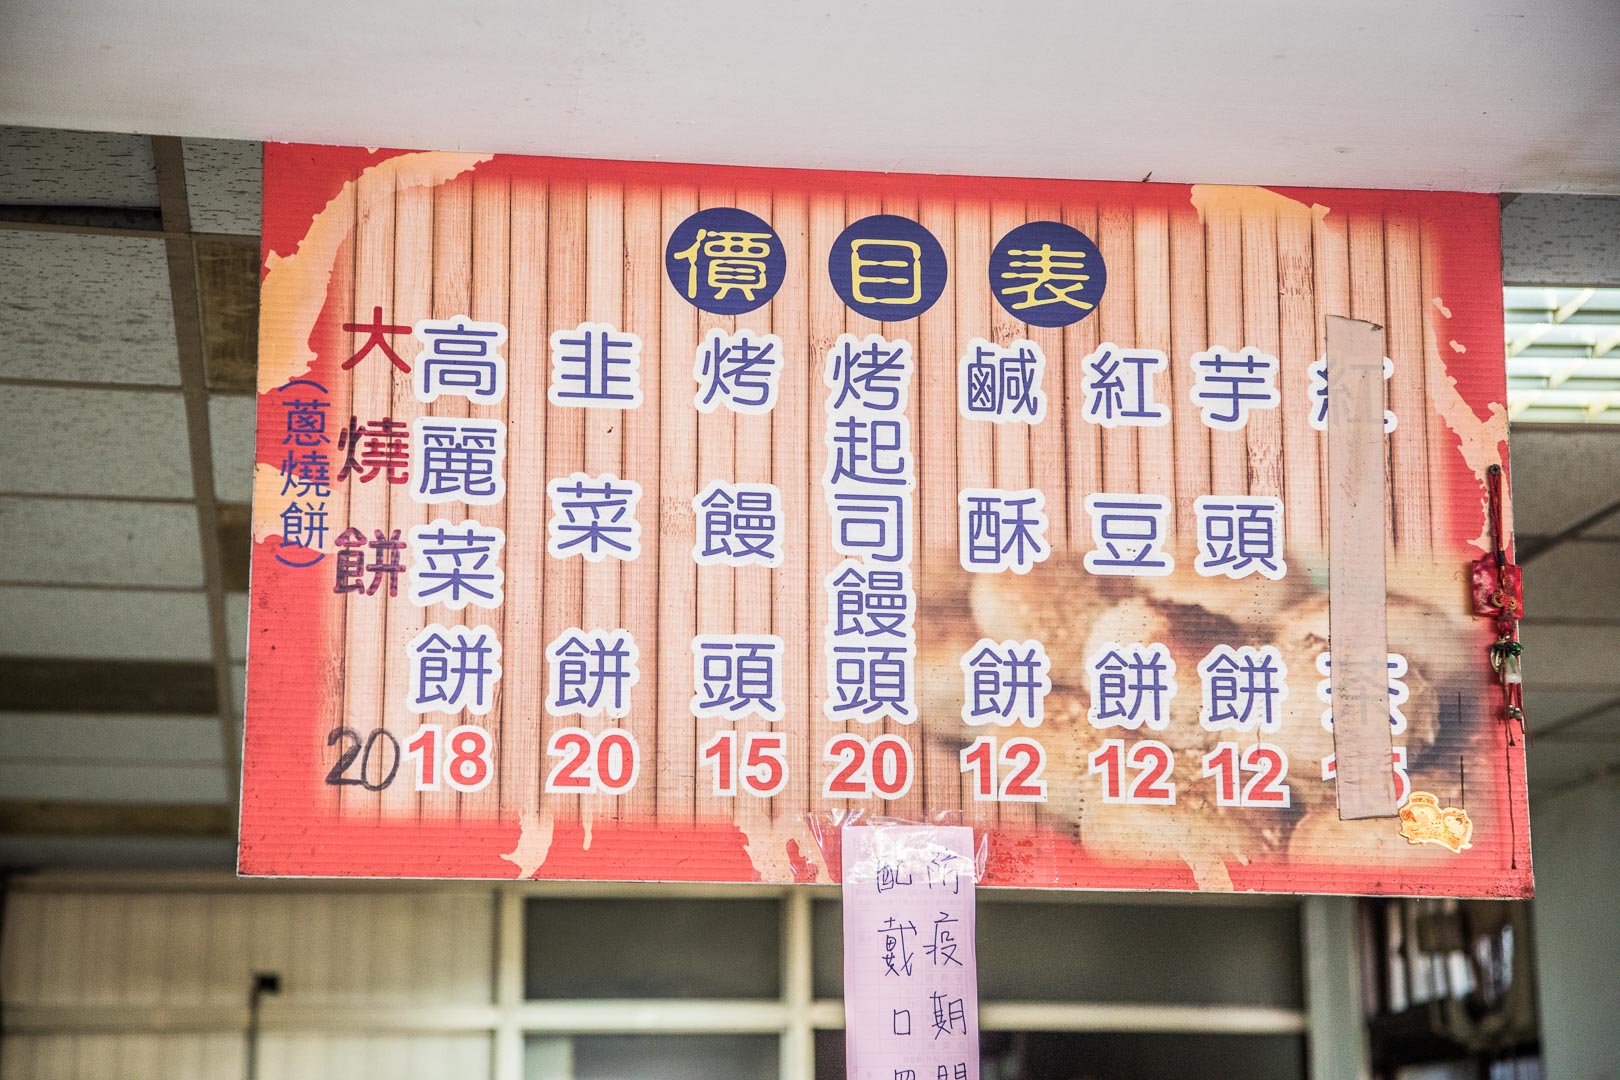 價目表
紅茶 15
芋頭餅 12
紅豆餅 12
鹹酥餅 12
烤起司饅頭 20
烤饅頭 15
韭菜餅 20
高麗菜餅 18
大燒餅 20
(蔥燒餅)
防疫期間
配戴口